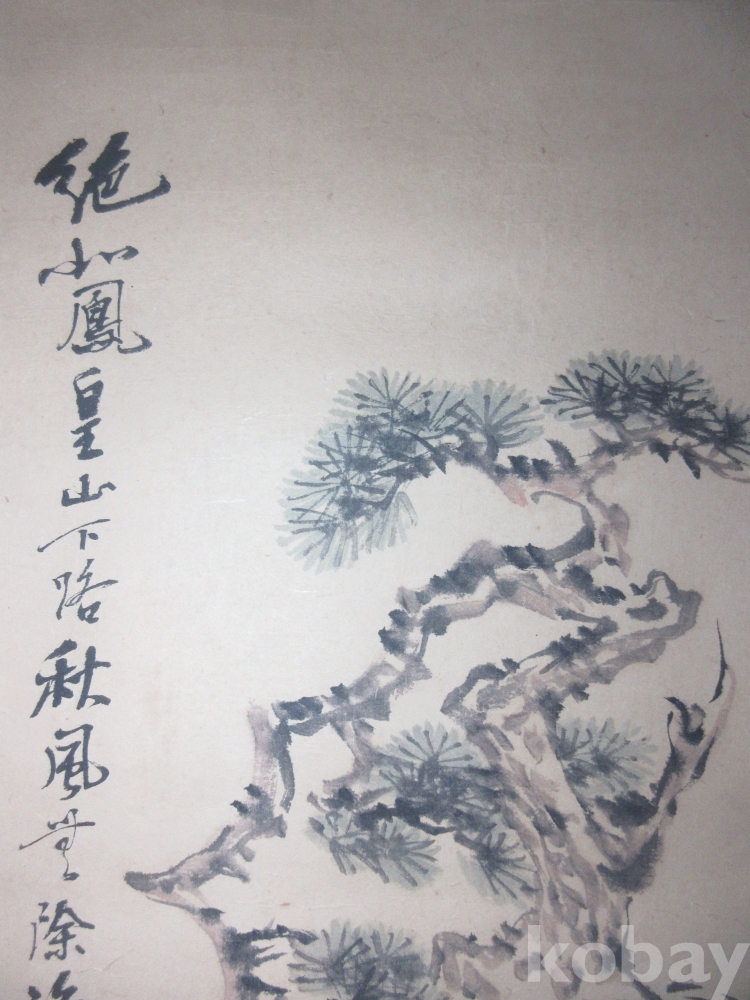 絶似鳳皇山下路秋風無際
kobay